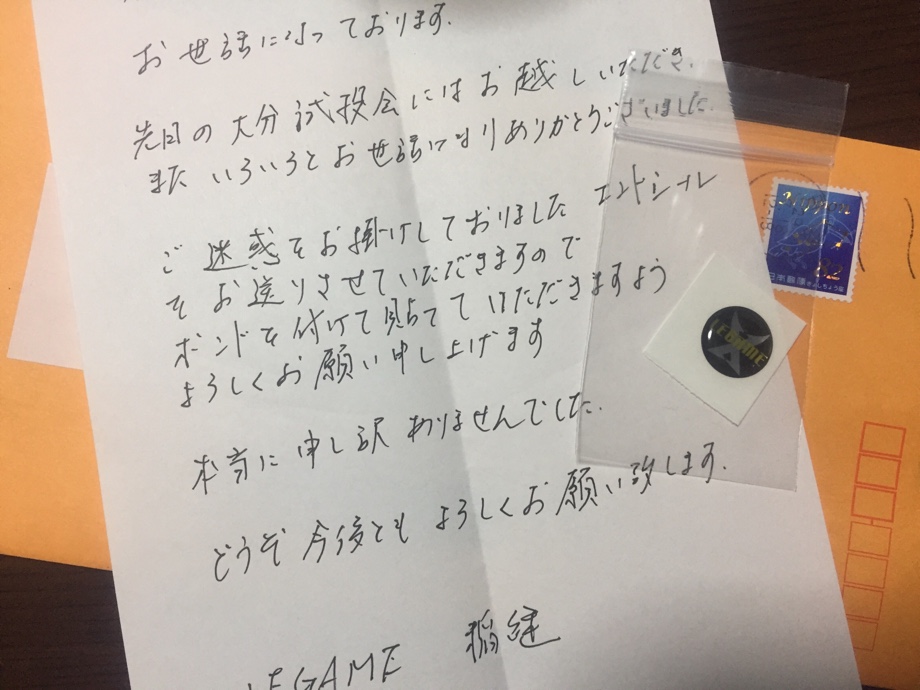 お世話になっております。
先日の大分試投会にはお越しいただき、
またいろいろとお世話になりありがとうございました。
ご迷惑をお掛けしておりました エンドシール
をお送りさせていただきますので
ボンドを付けて貼っていただきますよう
よろしくお願い申し上げます
本当に申し訳ありませんでした。
どうぞ今後ともよろしくお願い致します。
GAME 稲継
Nippon
82
日本郵便